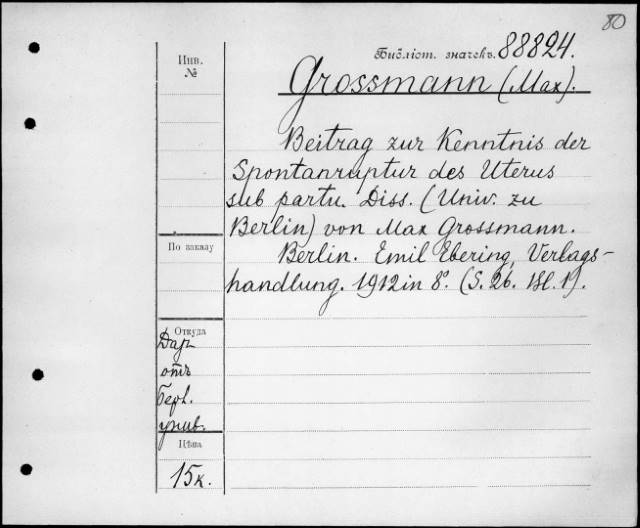 80
Инв.
№
Библіот. значекъ. 88824.
Grossmann (Max).
Beitrag zur Kenntnis der
Spontanruptur des Uterus
sub partu. Diss. (Univ. zu
Berlin) von Max Grossmann.
Berlin. Emil Ebering, Verlags-
handlung. 1912 in 8°. (S. 26. Bl. 1).
По заказу
Откуда
Даръ
отъ
Берл.
унив.
Цѣна
15к.